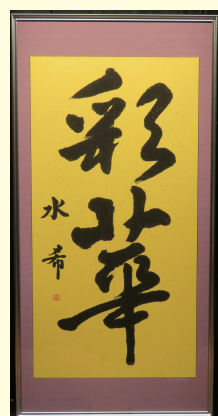 彩華
水希